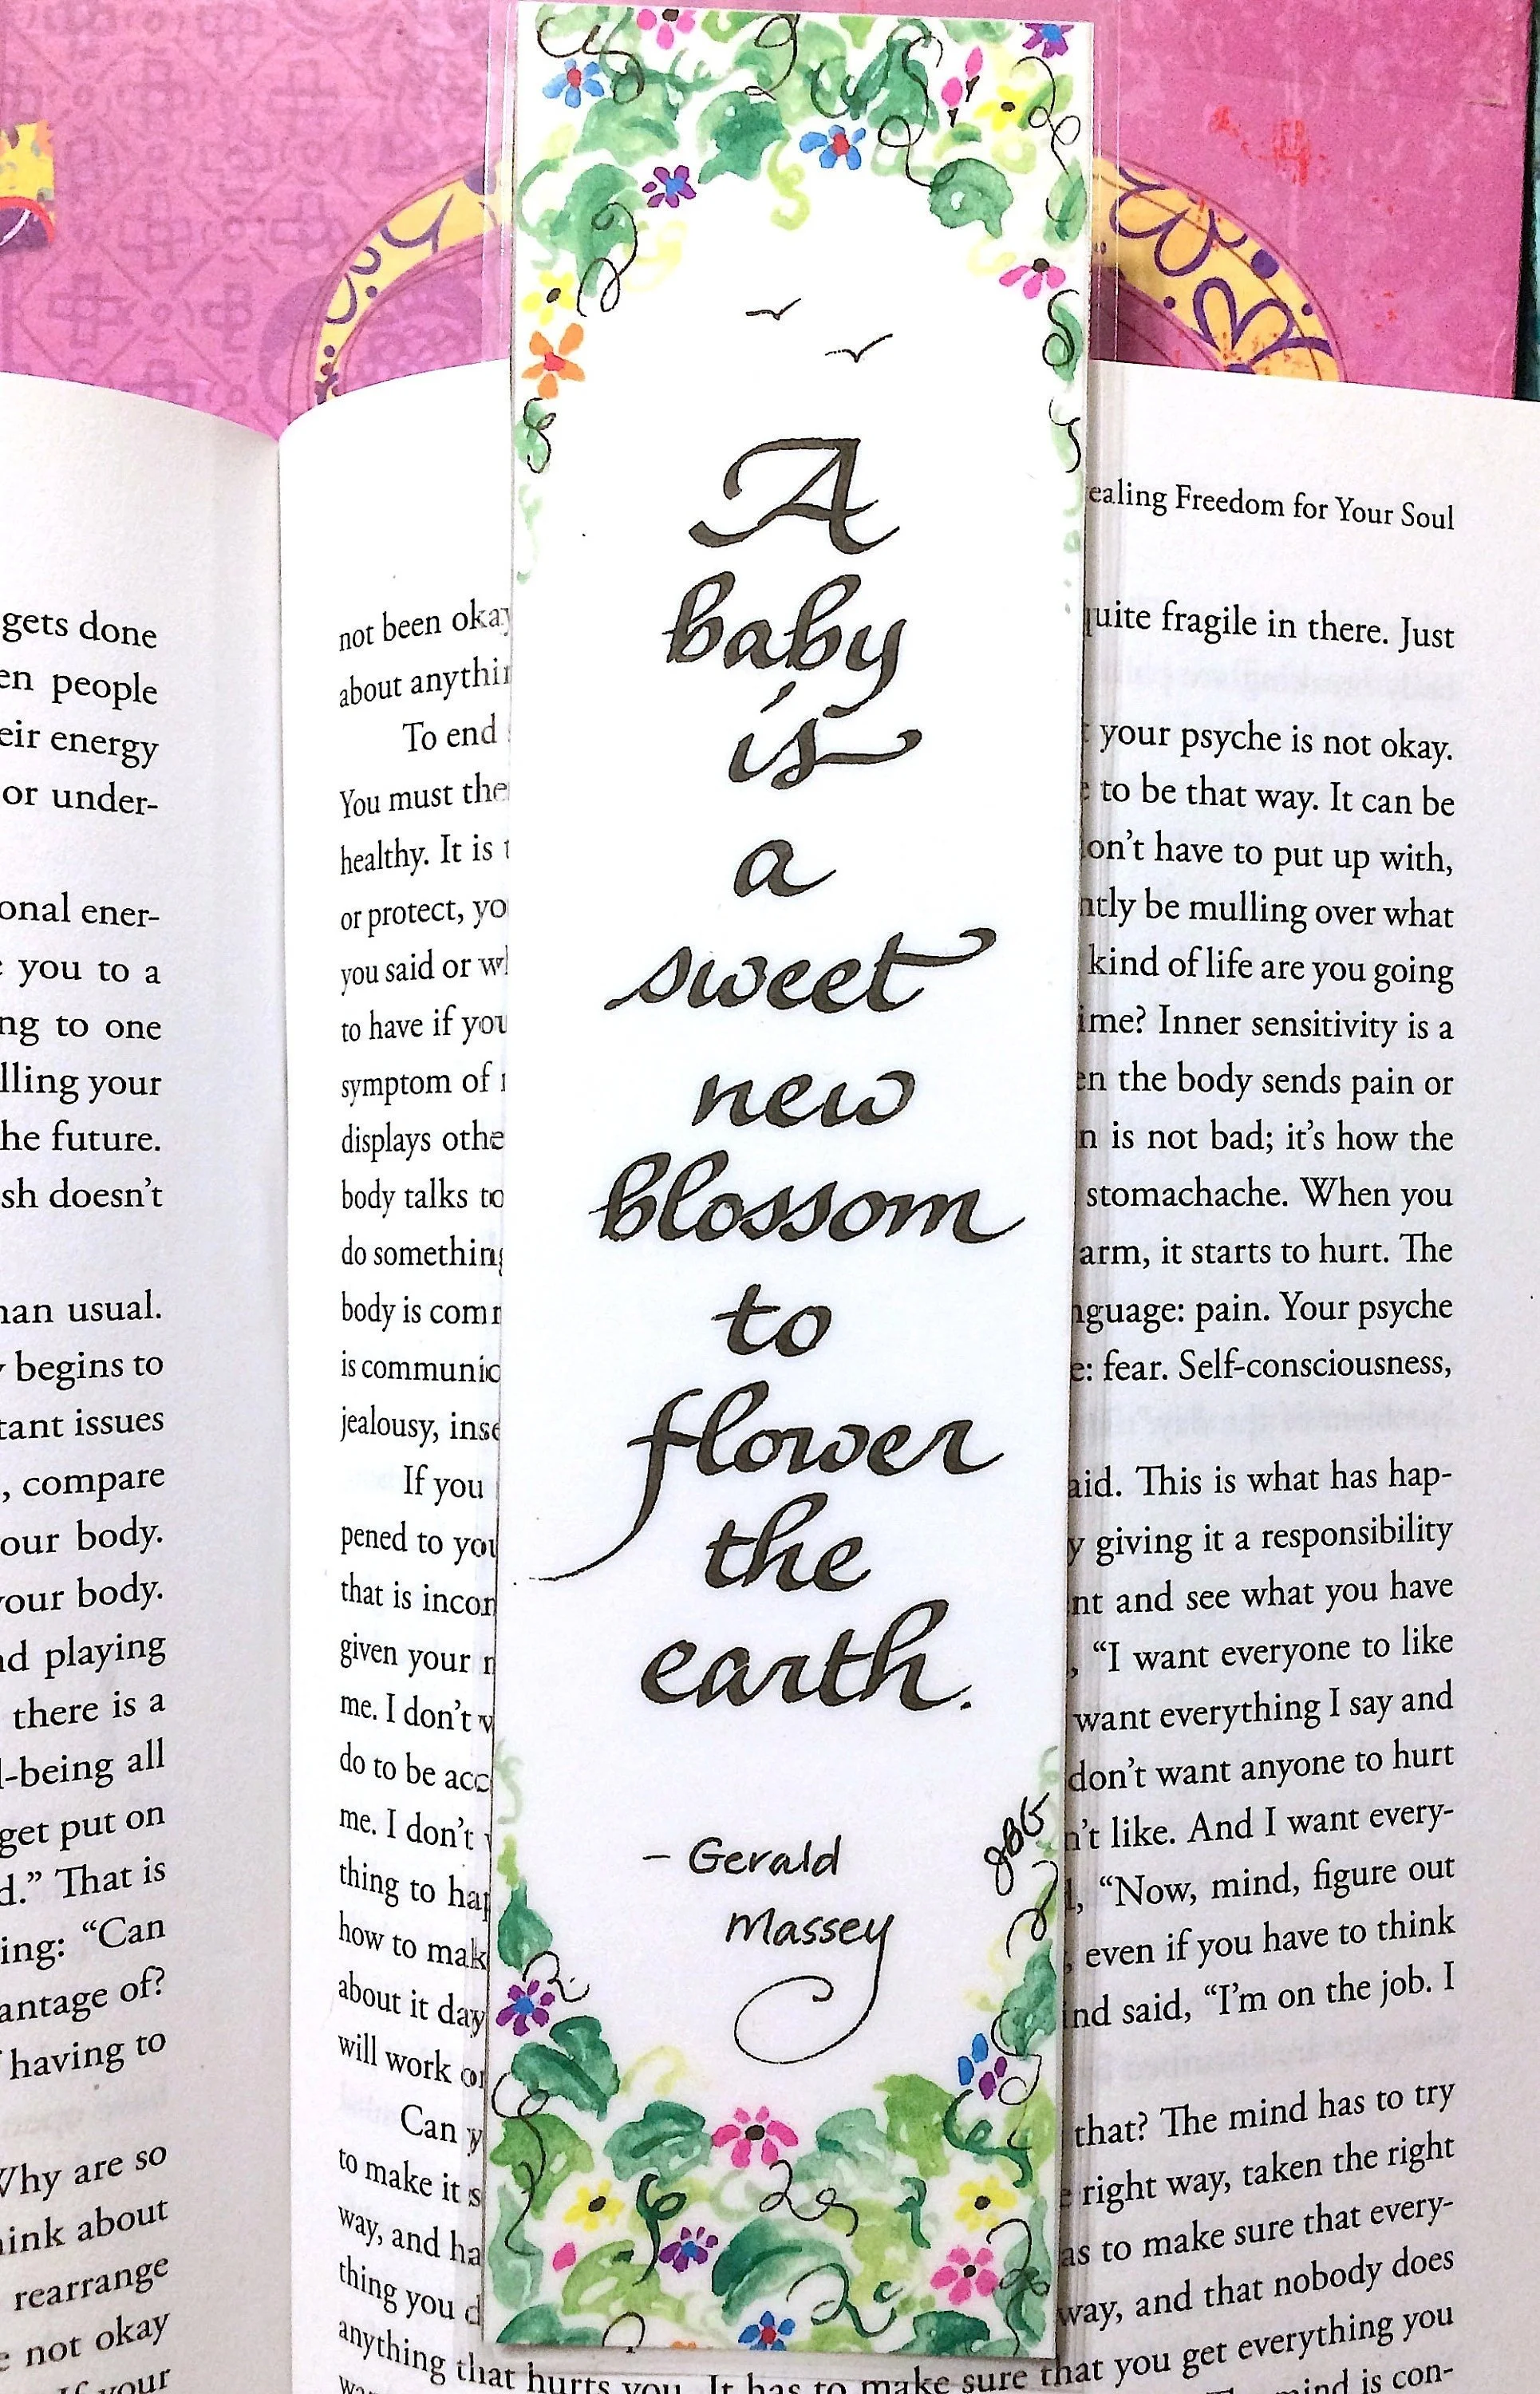 A
baby
is
a
sweet
new
blossom
to
flower
the
earth.
– Gerald
Massey
JBG
gets done
people
energy
or under-
ener-
you to a
to one
your
future.
doesn't
usual.
begins to
issues
, compare
body.
body.
playing
there is a
all
get put on
." That is
: "Can
of?
having to
are so
about
rearrange
not okay
Freedom for Your Soul
not been
fragile in there. Just
about
To end
your psyche is not okay.
You must
to be that way. It can be
healthy. It is
have to put up with,
or protect,
be mulling over what
you said or
kind of life are you going
to have if
Inner sensitivity is a
symptom of
the body sends pain or
displays
is not bad; it's how the
body talks
stomachache. When you
do
arm, it starts to hurt. The
body is
pain. Your psyche
is
fear. Self-consciousness,
jealousy,
If you
This is what has hap-
pened to
giving it a responsibility
that is
and see what you have
given your
"I want everyone to like
me. I don't
want everything I say and
do to be
don't want anyone to hurt
me. I don't
like. And I want every-
thing to
"Now, mind, figure out
how to
even if you have to think
about it
said, "I'm on the job. I
will work
Can
that? The mind has to try
to make it
right way, taken the right
way, and
to make sure that every-
thing you
way, and that nobody does
anything that hurts you. It has to make sure that you get everything you
mind is con-